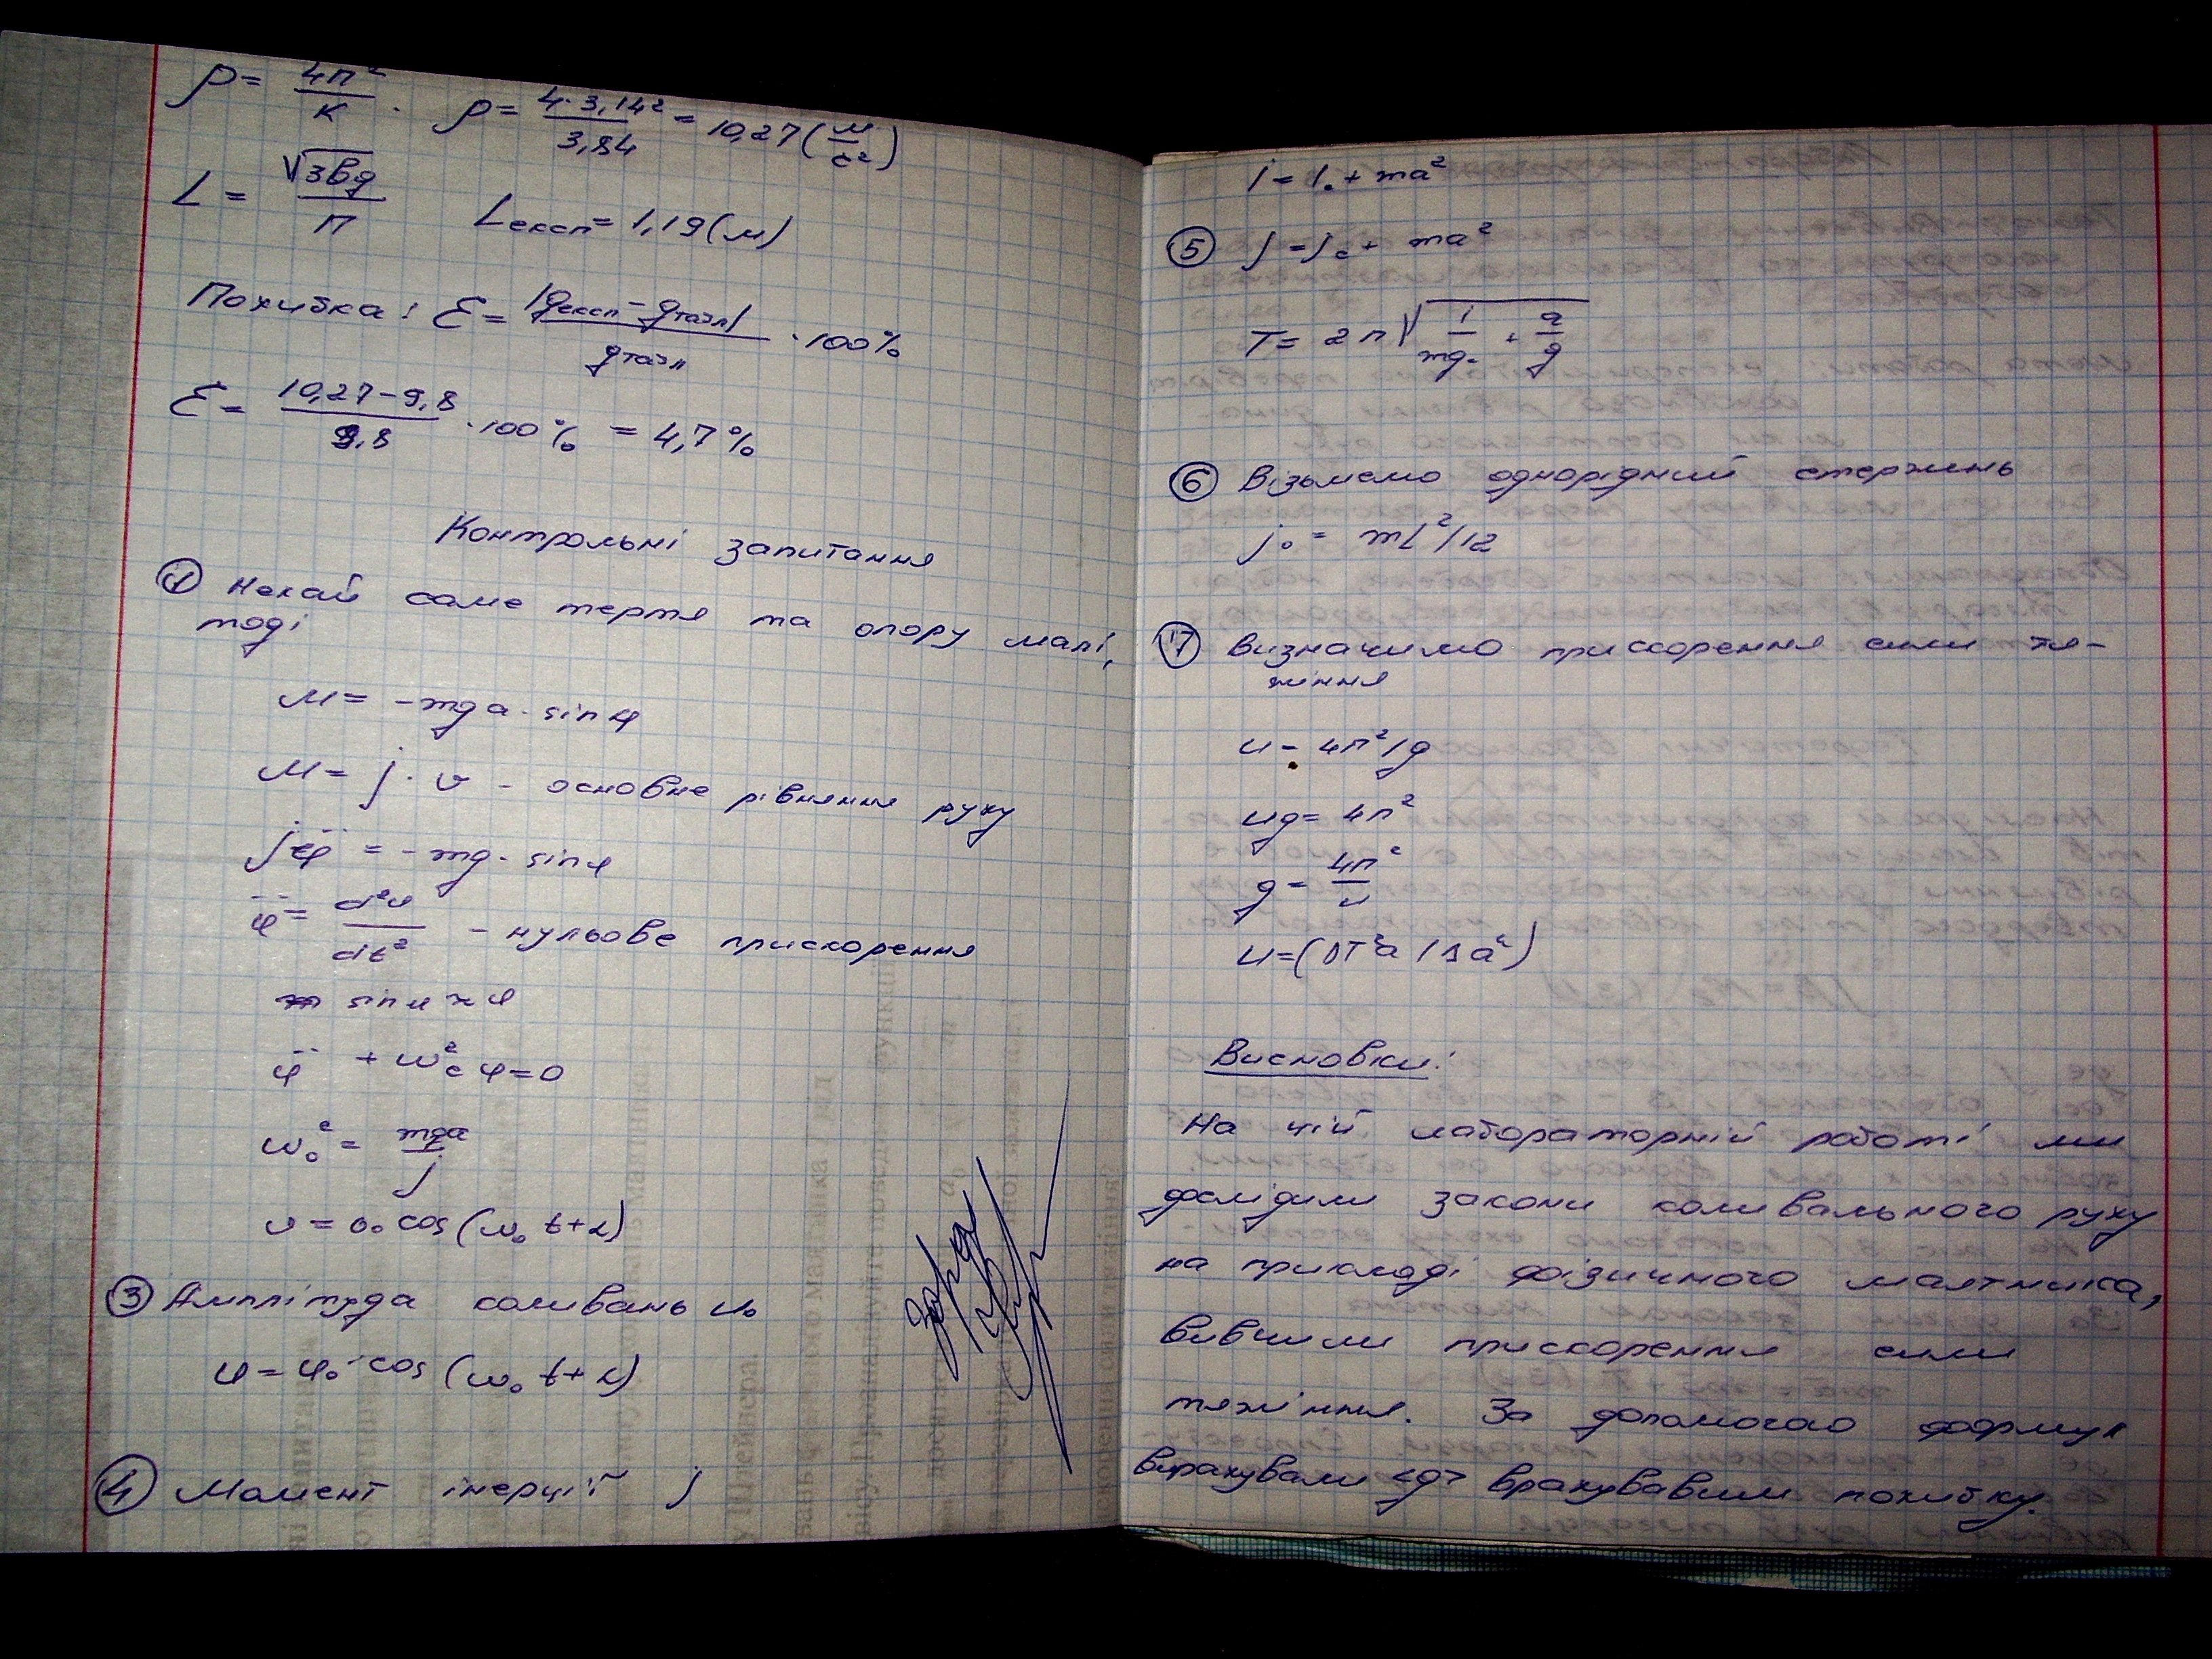 g = 4π² / k . g = 4·3,14² / 3,84 = 10,27 (м/с²)
L = √3bg / π Lексп = 1,19 (м)
Похибка: ε = |gексп - gтабл| / gтабл · 100%
ε = 10,27 - 9,8 / 9,8 · 100% = 4,7%
Контрольні запитання
① Нехай саме тертя та опору малі,
тоді
M = -mga · sin φ
M = j · υ - основне рівняння руху
jφ̈ = -mg · sin φ
φ̈ = d²φ / dt² - нульове прискорення
sin φ ≈ φ
φ̈ + ω₀² φ = 0
ω₀² = mga / j
υ = υ₀ cos (ω₀ t + α)
③ Амплітуда коливань φ₀
φ = φ₀ · cos (ω₀ t + α)
④ Момент інерції j
j = j₀ + ma²
⑤ j = jc + ma²
T = 2π √(j / mga + a / g)
⑥ Візьмемо однорідний стержень
j₀ = mL²/12
⑦ Визначимо прискорення сили тя-
жіння
u = 4π²/g
ug = 4π²
g = 4π² / u
u = (ΔT²a / Δa²)
Висновки:
На цій лабораторній роботі ми
дослідили закони коливального руху
на прикладі фізичного маятника,
вивчили прискорення сили
тяжіння. За допомогою формул
вирахували <g> врахувавши похибку.